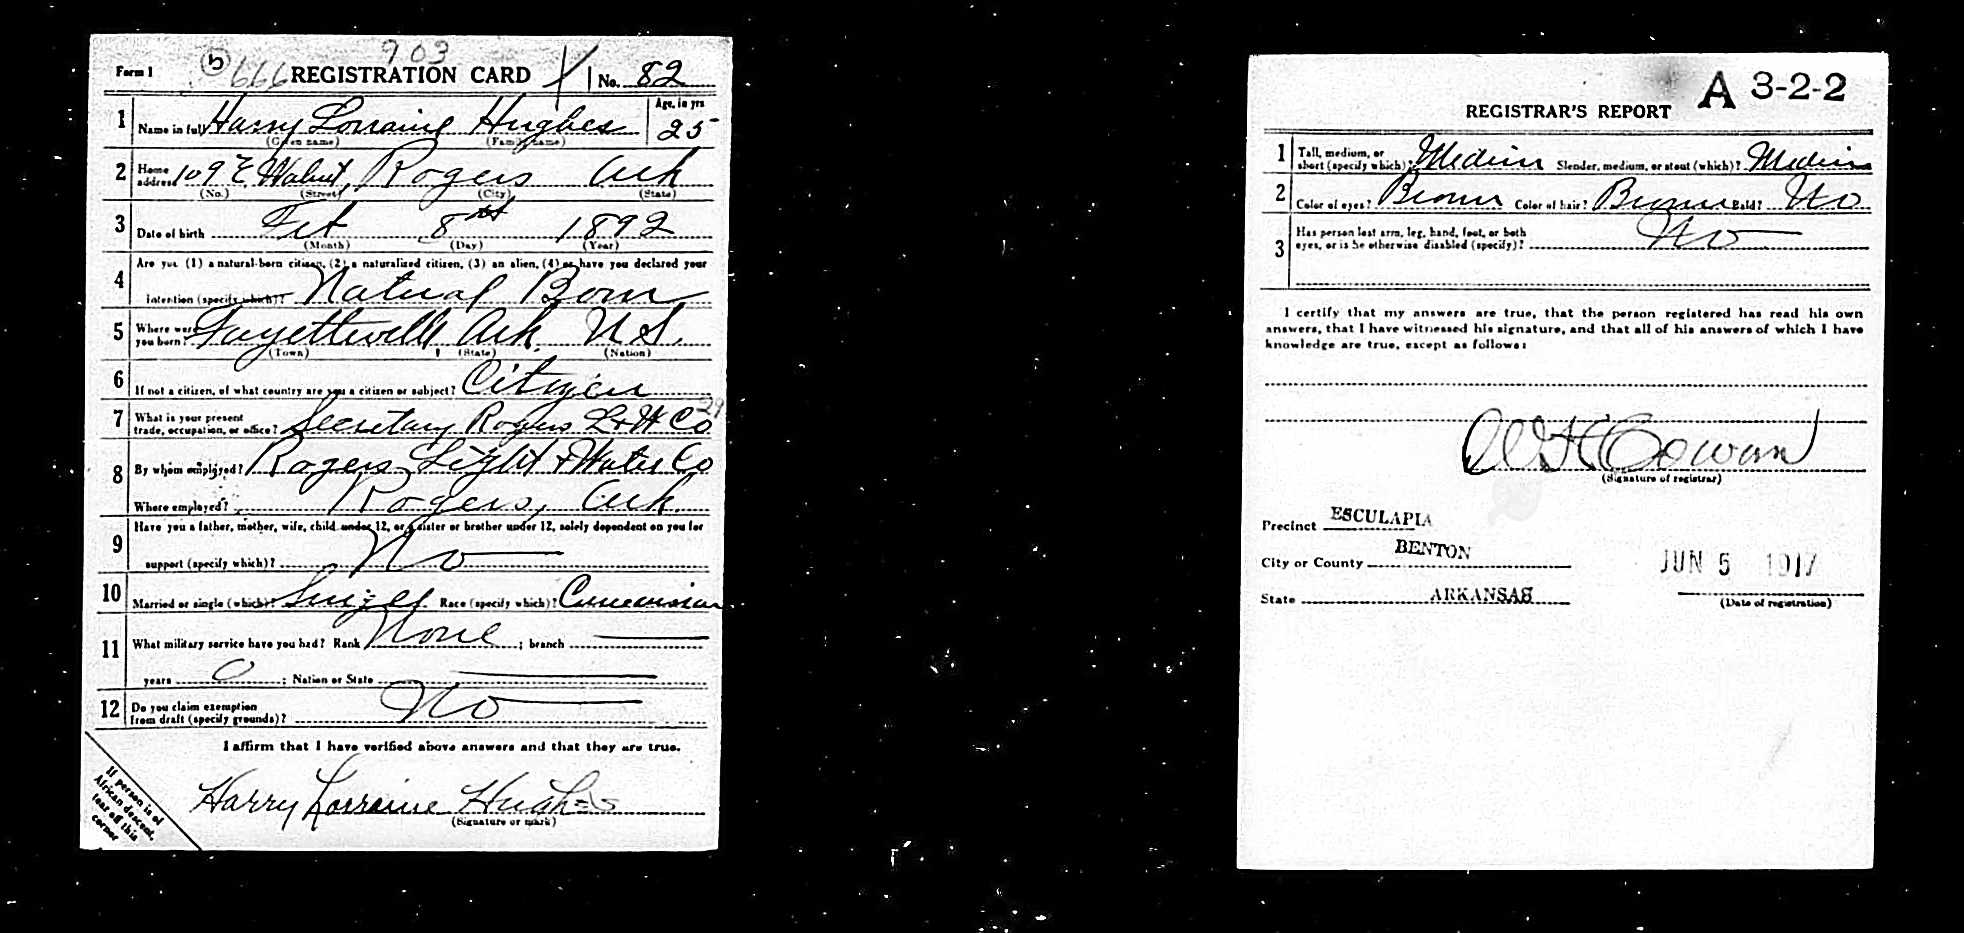 903
5 666
Form 1 REGISTRATION CARD No. 82
1 Name in full Harry Lorraine Hughes Age, in yrs 25
(Given name) (Family name)
2 Home address 109 E Walnut, Rogers Ark
(No.) (Street) (City) (State)
3 Date of birth Feb 8th 1892
(Month) (Day) (Year)
4 Are you (1) a natural-born citizen, (2) a naturalized citizen, (3) an alien, (4) or have you declared your
intention (specify which)? Natural Born
5 Where were you born? Fayetteville Ark. U.S.
(Town) (State) (Nation)
6 If not a citizen, of what country are you a citizen or subject? Citizen
7 What is your present
trade, occupation, or office? Secretary Rogers L+W Co 29
8 By whom employed? Rogers Light + Water Co
Where employed? Rogers, Ark.
9 Have you a father, mother, wife, child under 12, or a sister or brother under 12, solely dependent on you for
support (specify which)? No
10 Married or single (which)? Single Race (specify which)? Caucasian
11 What military service have you had? Rank None ; branch
years 0 ; Nation or State
12 Do you claim exemption
from draft (specify grounds)? No
I affirm that I have verified above answers and that they are true.
Harry Lorraine Hughes
(Signature or mark)
If person is of
African descent,
tear off this
corner
A 3-2-2
REGISTRAR'S REPORT
1 Tall, medium, or
short (specify which)? Medium Slender, medium, or stout (which)? Medium
2 Color of eyes? Brown Color of hair? Brown Bald? No
3 Has person lost arm, leg, hand, foot, or both
eyes, or is he otherwise disabled (specify)? No
I certify that my answers are true, that the person registered has read his own
answers, that I have witnessed his signature, and that all of his answers of which I have
knowledge are true, except as follows:
Cowan
(Signature of registrar)
Precinct ESCULAPIA
City or County BENTON
JUN 5 1917
State ARKANSAS
(Date of registration)